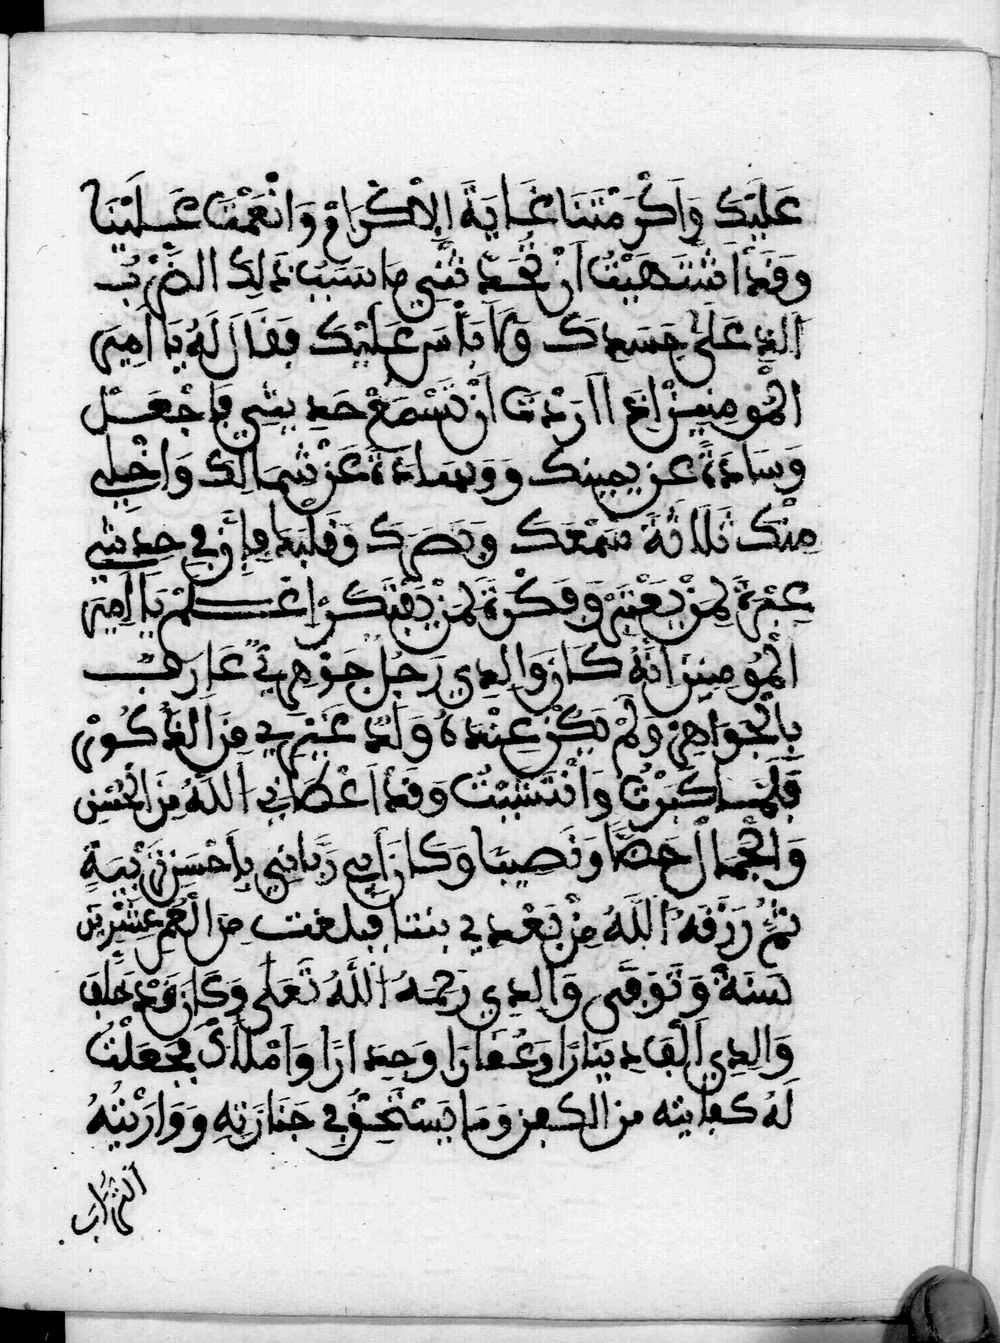 عَلَيْكَ وَأَكْرَمْتَنَا غَايَةَ الْإِكْرَامِ وَأَنْعَمْتَ عَلَيْنَا
وَقَدْ اَشْتَهَيْتُ أَنْ تُحَدِّثَنِي مَا سَبَبُ ذَلِكَ الضَّرْبِ
الَّذِ عَلَى جَسَدِكَ وَلَا بَأْسَ عَلَيْكَ فَقَالَ لَهُ يَا أَمِيرَ
الْمُومِنِينَ إِذَا أَرَدْتَ أَنْ تَسْمَعَ حَدِيثِي فَاجْعَلْ
وِسَادَةً عَنْ يَمِينِكَ وَوِسَادَةً عَنْ شِمَالِكَ وَاخْلِي
مِنْكَ ثَلَاثَةً سَمْعَكَ وَبَصَرَكَ وَقَلْبَكَ فَإِنَّ فِي حَدِيثِي
عِبْرَةً لِمَنْ يَعْتَبِرُ وَفِكْرَةً لِمَنْ يَفْتَكِرُ اعْلَمْ يَا أَمِيرَ
الْمُومِنِينَ أَنَّهُ كَانَ وَالِدِي رَجُلٌ جَوْهَرِيٌّ عَارِفٌ
بِالْجَوَاهِرِ وَلَمْ يَكُنْ عِنْدَهُ وَلَدٌ غَيْرِي مِنَ الذُّكُورِ
فَلَمَّا كَبِرْتُ وَانْتَشَيْتُ وَقَدْ أَعْطَانِي اللَّهُ مِنَ الْحُسْنِ
وَالْجَمَالِ حَظًّا وَنَصِيبًا وَكَانَ أَبِي رَبَّانِي بِأَحْسَنِ تَرْبِيَةٍ
ثُمَّ رَزَقَهُ اللَّهُ مِنْ بَعْدِي بِنْتًا فَبَلَغَتْ مِنَ الْعُمُرِ عِشْرِينَ
سَنَةً وَتُوُفِّيَ وَالِدِي رَحِمَهُ اللَّهُ تَعَلَى وَكَانَ قَدْ خَلَّفَ
وَالِدِي أَلْفَ دِينَارًا وَعُقَارًا وَجِدَارًا وَأَمْلَاكً فَجَعَلْتُ
لَهُ كِفَايَتَهُ مِنَ الْكَفَنِ وَمَا يَسْتَحِقُّ فِي جَنَازَتِهِ وَوَارَيْتُهُ
التُّرَابَ